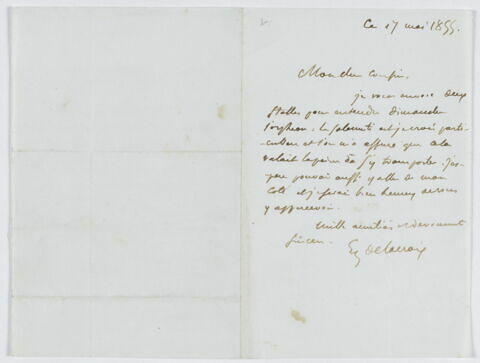 Ce 17 mai 1855.
Mon cher cousin,
je vous envoie deux
stalles pour entendre dimanche
Orphéon. la solennité est je crois parti-
culière et l'on m'a assuré que cela
valait la peine de s'y transporter. J'es-
père pouvoir aussi y aller de mon
côté et je serai bien heureux de vous
y apercevoir.
Mille amitiés et dévouement
sincère.
Eg Delacroix